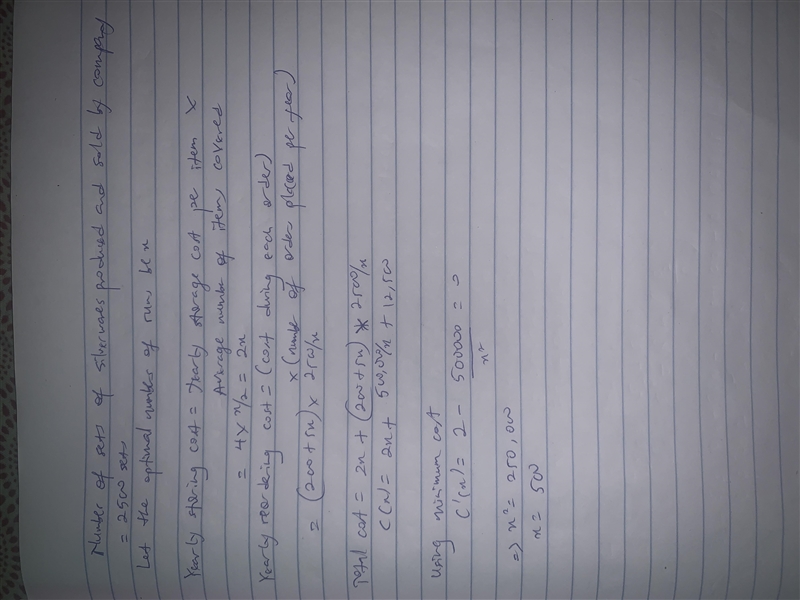 Number of sets of silverwares produced and sold by company
= 2500 sets
Let the optimal number of runs be x
Yearly storing cost = Yearly storage cost per item ×
Average number of items covered
= 4 × x/2 = 2x
Yearly reordering cost = (cost during each order)
× (number of orders placed per year)
= (200 + 5x) × 2500/x
Total cost = 2x + (200 + 5x) * 2500/x
C(x) = 2x + 500,000/x + 12,500
Using minimum cost
C'(x) = 2 - 500000/x² = 0
=> x² = 250,000
x = 500